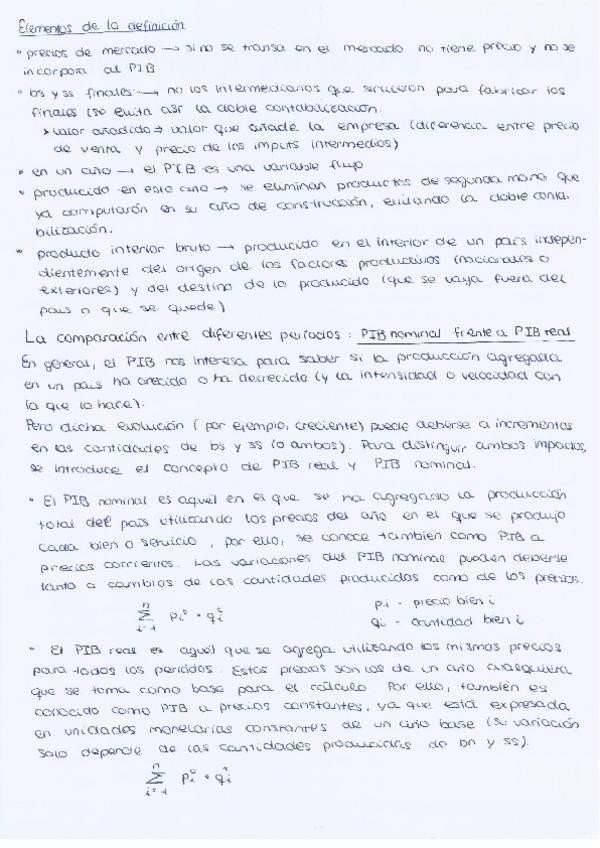 Elementos de la definición
• precios de mercado → si no se transa en el mercado no tiene precio y no se
incorpora al PIB
• bs y ss finales → no los intermediarios que sirvieron para fabricar los
finales (se evita así la doble contabilización.
> valor añadido → valor que añade la empresa (diferencia entre precio
de venta y precio de los imputs intermedios)
• en un año → el PIB es una variable flujo
• producido en este año → se eliminan productos de segunda mano que
ya computarón en su año de construcción, evitando la doble conta-
bilización.
• producto interior bruto → producido en el interior de un país indepen-
dientemente del origen de los factores productivos (nacionales o
exteriores) y del destino de lo producido (que se vaya fuera del
país o que se quede).
La comparación entre diferentes períodos: PIB nominal frente a PIB real
En general, el PIB nos interesa para saber si la producción agregada
en un país ha crecido o ha decrecido (y la intensidad o velocidad con
la que lo hace).
Pero dicha evolución (por ejemplo, creciente) puede deberse a incrementos
en las cantidades de bs y ss (o ambos). Para distinguir ambos impactos,
se introduce el concepto de PIB real y PIB nominal.
• El PIB nominal es aquél en el que se ha agregado la producción
total del país utilizando los precios del año en el que se produjo
cada bien o servicio, por ello, se conoce también como PIB a
precios corrientes. Las variaciones del PIB nominal pueden deberse
tanto a cambios de las cantidades producidas como de los precios.
n
Σ pi · qi
i=1
pi - precio bien i
qi - cantidad bien i
• El PIB real es aquél que se agrega utilizando los mismos precios
para todos los períodos. Estos precios son los de un año cualquiera
que se toma como base para el cálculo. Por ello, también es
conocido como PIB a precios constantes, ya que está expresada
en unidades monetarias constantes de un año base (su variación
solo depende de las cantidades producidas de bn y ss).
n
Σ pi⁰ · qi
i=1